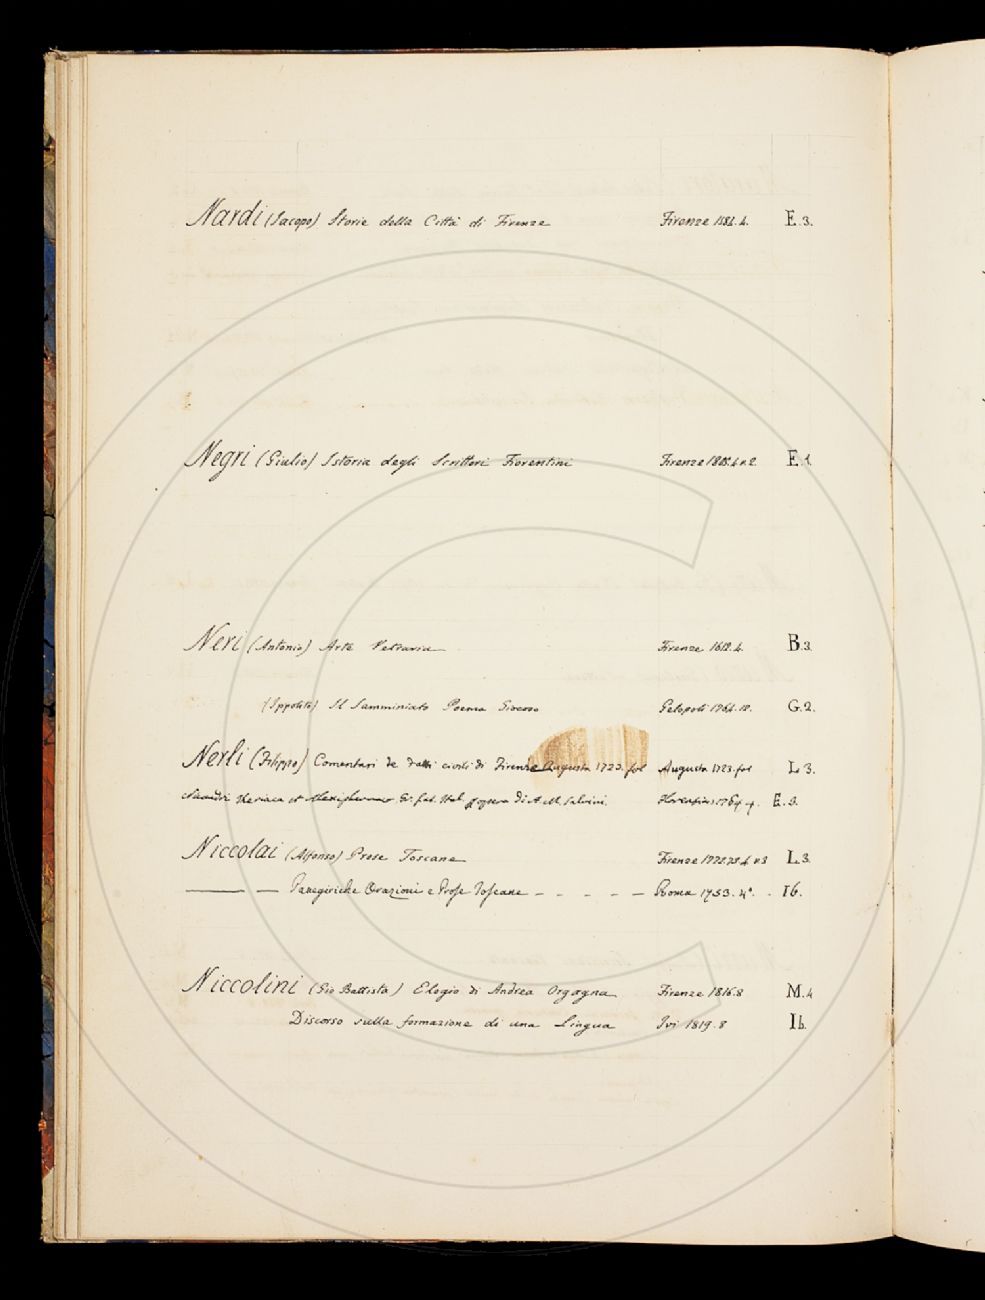 Nardi (Jacopo) Storie della Città di Firenze Firenze 1584. 4. E.3.
Negri (Giulio) Istoria degli Scrittori Fiorentini Firenze E.1.
Neri (Antonio) Arte Vetraria Firenze 1612. 4. B.3.
(Ippolito) Il Samminiato Poema Giocoso Gelopoli G.2.
Nerli (Filippo) Comentari de Fatti civili di Firenze Augusta 1723. fol Augusta 1723. fol L.3.
et Gr. Lat. Ital. di A. M. Salvini. 1764. 4. E.3.
Niccolai (Alfonso) Prose Toscane Firenze L.3.
——— — Panegiriche Orazioni e Prose Toscane – – – – – Roma 1753. 4°. . Ib.
Niccolini (Gio Battista) Elogio di Andrea Orgagna Firenze 1816. 8 M.4
Discorso sulla formazione di una Lingua Ivi 1819. 8 Ib.
C